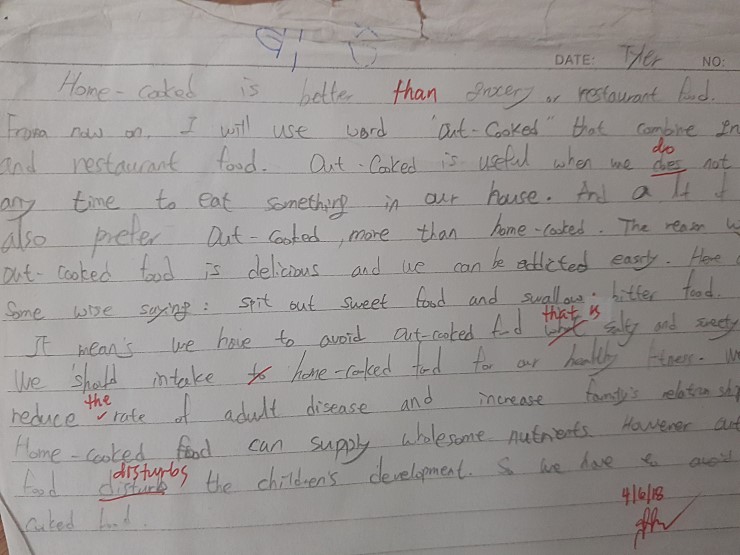 DATE: Tyler NO:
Home-cooked is better than grocery or restaurant food.
From now on, I will use word "out-Cooked" that combine
and restaurant food. Out-Cooked is useful when we does do not
any time to eat something in our house. And a
also prefer out-cooked, more than home-cooked. The reason
out-cooked food is delicious and we can be addicted easily. Here
Some wise saying: spit out sweet food and swallow bitter food.
It mean's we have to avoid out-cooked food what that is salty and sweety
We should intake to home-cooked food for our healthy fitness.
reduce the rate of adult disease and increase family's relationship
Home-cooked food can supply wholesome nutrients. However
food disturb disturbs the children's development. So we have to avoid
cooked food.
4/6/18